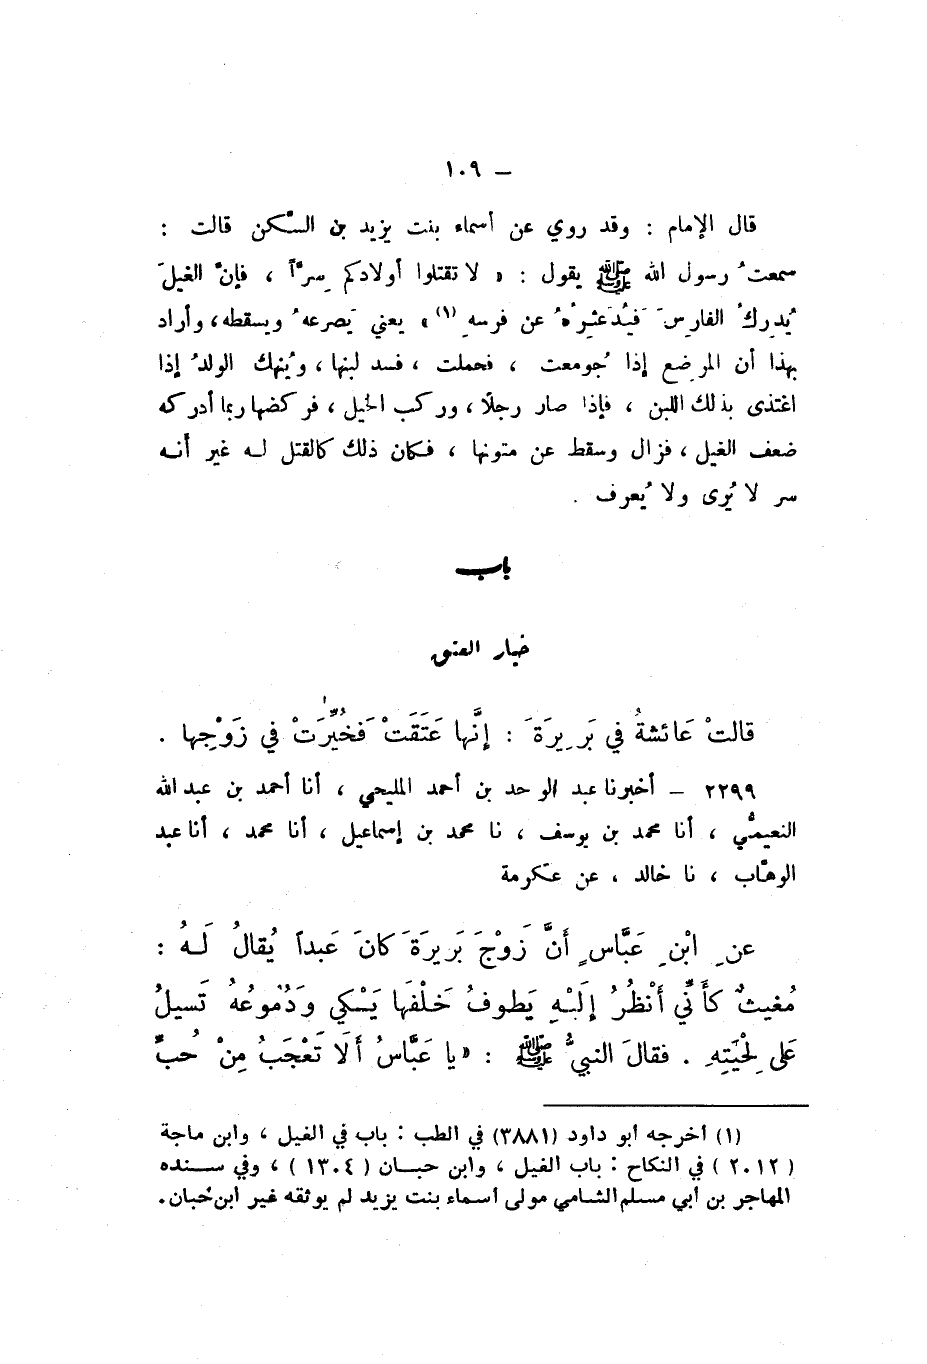 – ١٠٩
قال الإمام : وقد روي عن أسماء بنت يزيد بن السَّكن قالت :
سمعتُ رسول الله ﷺ يقول : « لا تقتلوا أولادكم سِرّاً ، فإنَّ الغيلَ
يُدرِكُ الفارِسَ فَيُدَعْثِرُهُ عن فرسهِ (١)» يعني يَصرعهُ ويسقطه، وأراد
بهذا أن المرضِع إذا جُومعت ، فحملت ، فسد لبنها ، ويُنهك الولدُ إذا
اغتذى بذلك اللبن ، فإذا صار رجلًا ، وركب الخيل ، فركضها ربما أدركه
ضعف الغيل ، فزال وسقط عن متونها ، فكان ذلك كالقتل لـه غير أنـه
سر لا يُرى ولا يُعرف .
باب
خيار العتق
قالتْ عَائشةُ في بَرِيرَةَ : إِنَّها عَتَقَتْ فَخُيِّرَتْ في زَوْجِها .
٢٢٩٩ – أخبرنا عبد الوحد بن أحمد المليحي ، أنا أحمد بن عبد الله
النعيميُّ ، أنا محمد بن يوسف ، نا محمد بن إسماعيل ، أنا محمد ، أنا عبد
الوهَّاب ، نا خالد ، عن عكرمة
عنِ ابْنِ عَبَّاسٍ أَنَّ زَوْجَ بَرِيرَةَ كانَ عَبداً يُقالُ لَـهُ :
مُغيثٌ كأَنِّي أَنْظُرُ إِلَيْهِ يَطوفُ خَلْفَها يَبْكي وَدُمُوعُهُ تَسيلُ
عَلى لِحْيَتِهِ . فقالَ النبيُّ ﷺ : « يا عَبَّاسُ أَلَا تَعْجَبُ مِنْ حُبِّ
(١) أخرجه أبو داود (٣٨٨١) في الطب : باب في الغيل ، وابن ماجة
(٢٠١٢) في النكاح : باب الغيل ، وابن حبـان (١٣٠٤) ، وفي سـنده
المهاجر بن أبي مسلم الشامي مولى أسماء بنت يزيد لم يوثقه غير ابن حُبان .